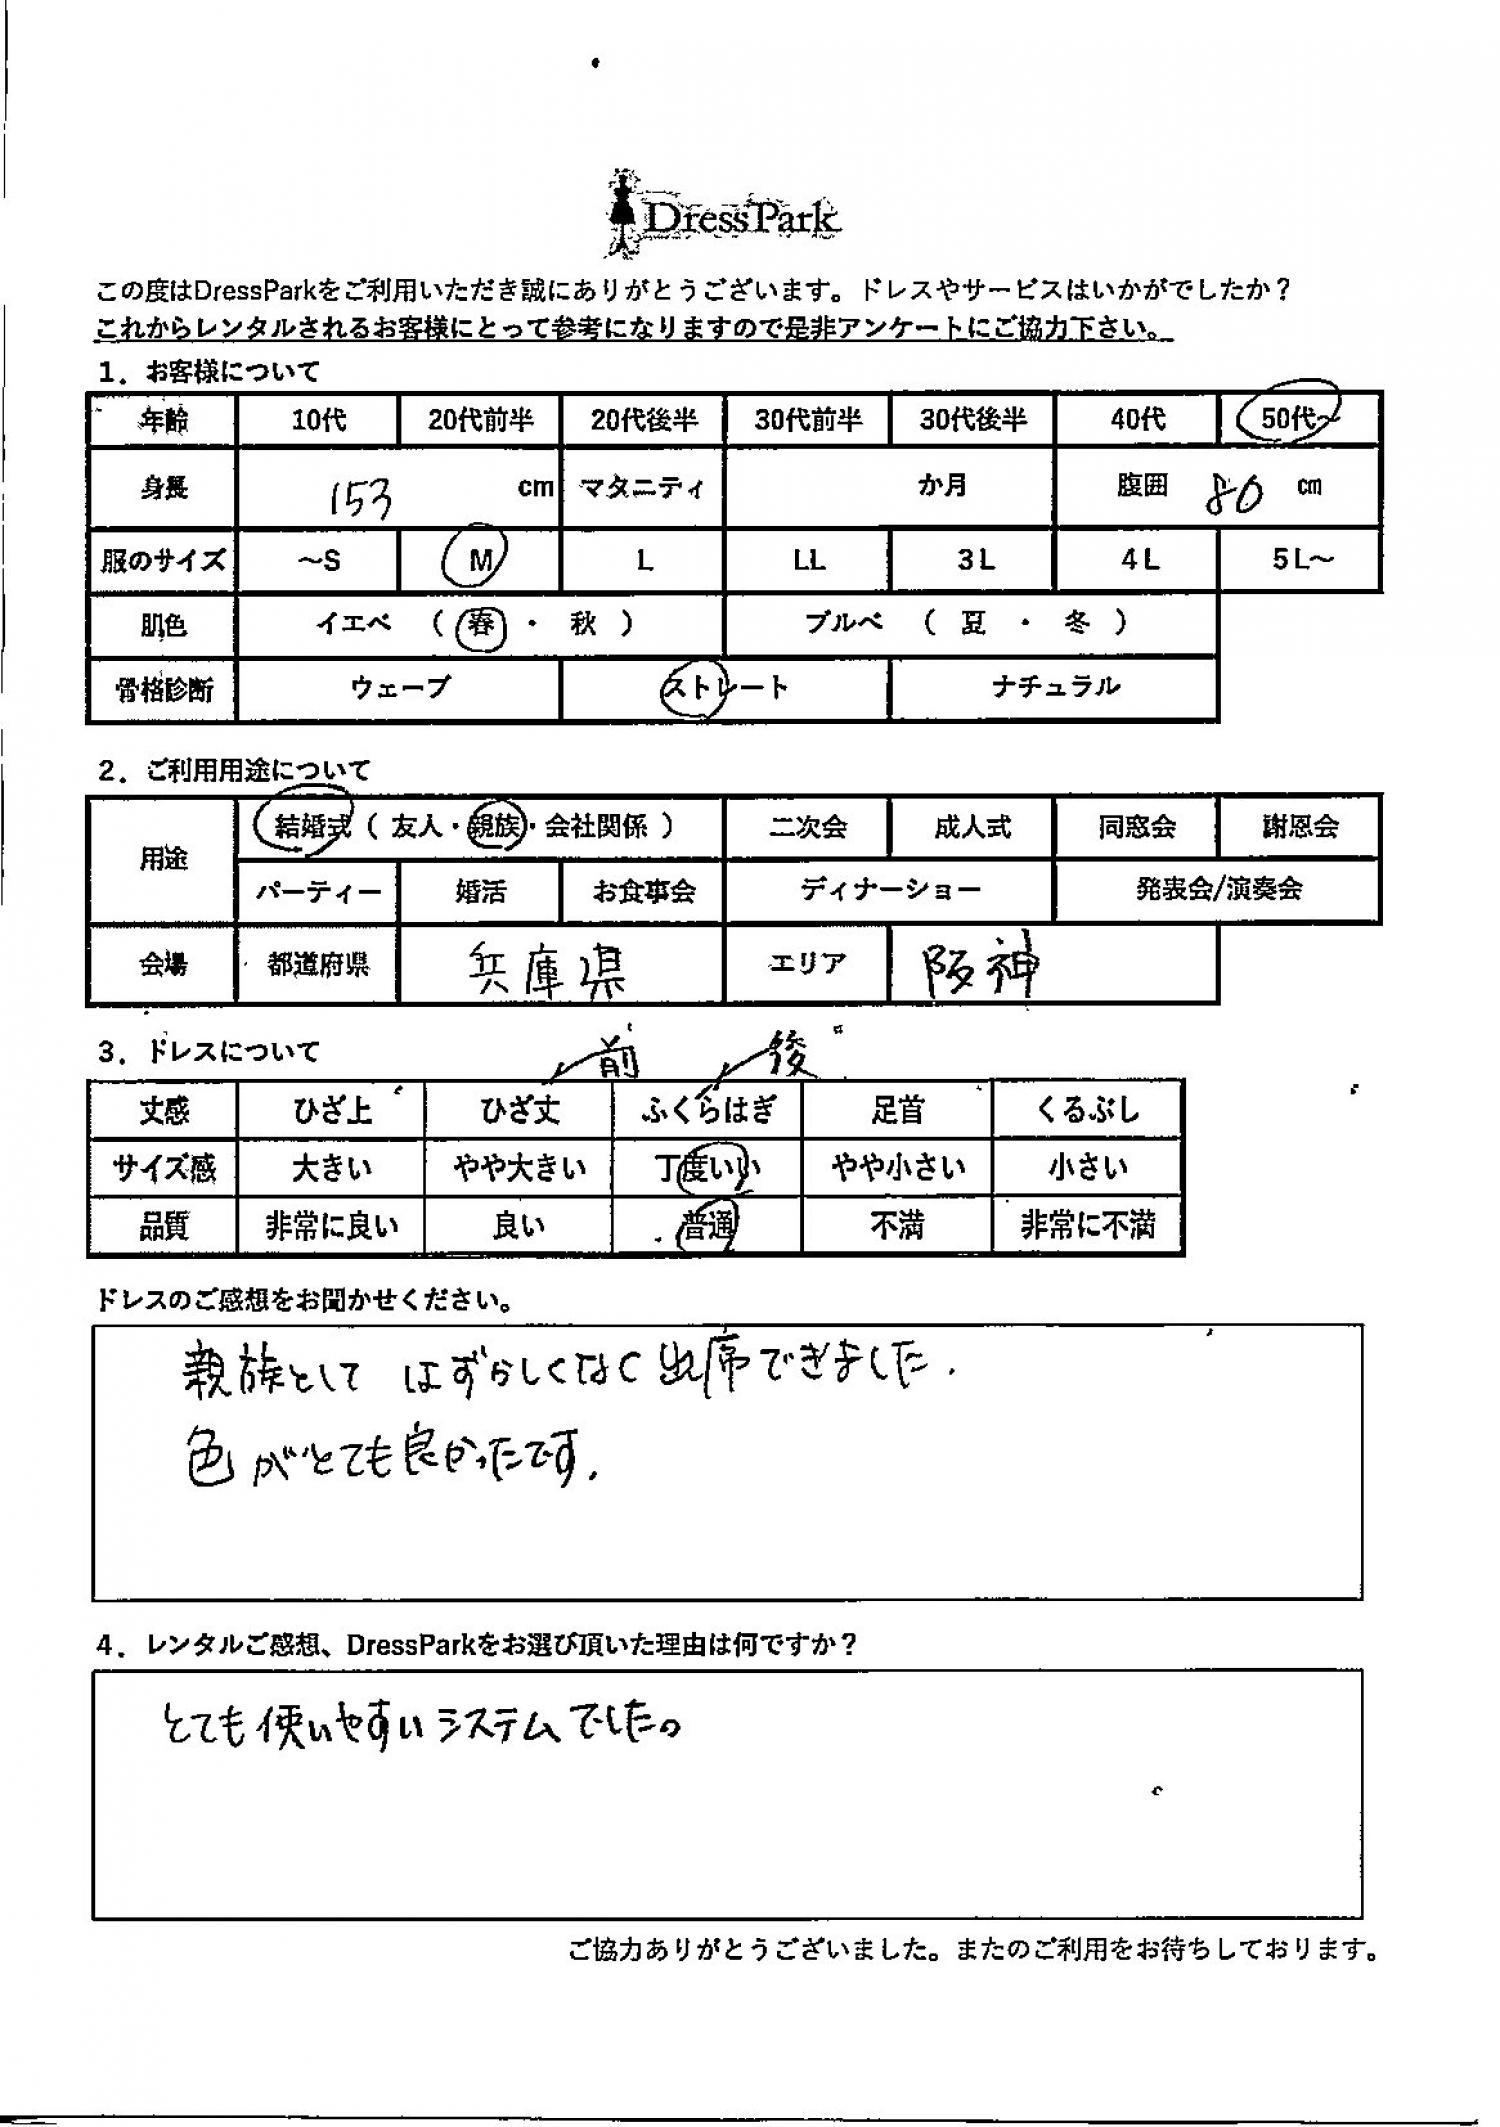 DressPark
この度はDressParkをご利用いただき誠にありがとうございます。ドレスやサービスはいかがでしたか？
これからレンタルされるお客様にとって参考になりますので是非アンケートにご協力下さい。
1．お客様について
年齢 10代 20代前半 20代後半 30代前半 30代後半 40代 50代～
身長 153 cm マタニティ か月 腹囲 80 cm
服のサイズ ～S M L LL 3L 4L 5L～
肌色 イエベ （ 春 ・ 秋 ） ブルベ （ 夏 ・ 冬 ）
骨格診断 ウェーブ ストレート ナチュラル
2．ご利用用途について
用途 結婚式（ 友人・親族・会社関係 ） 二次会 成人式 同窓会 謝恩会
パーティー 婚活 お食事会 ディナーショー 発表会/演奏会
会場 都道府県 兵庫県 エリア 阪神
3．ドレスについて 前 後
丈感 ひざ上 ひざ丈 ふくらはぎ 足首 くるぶし
サイズ感 大きい やや大きい 丁度いい やや小さい 小さい
品質 非常に良い 良い 普通 不満 非常に不満
ドレスのご感想をお聞かせください。
親族として はずかしくなく出席できました.
色がとても良かったです.
4．レンタルご感想、DressParkをお選び頂いた理由は何ですか？
とても使いやすいシステムでした。
ご協力ありがとうございました。またのご利用をお待ちしております。